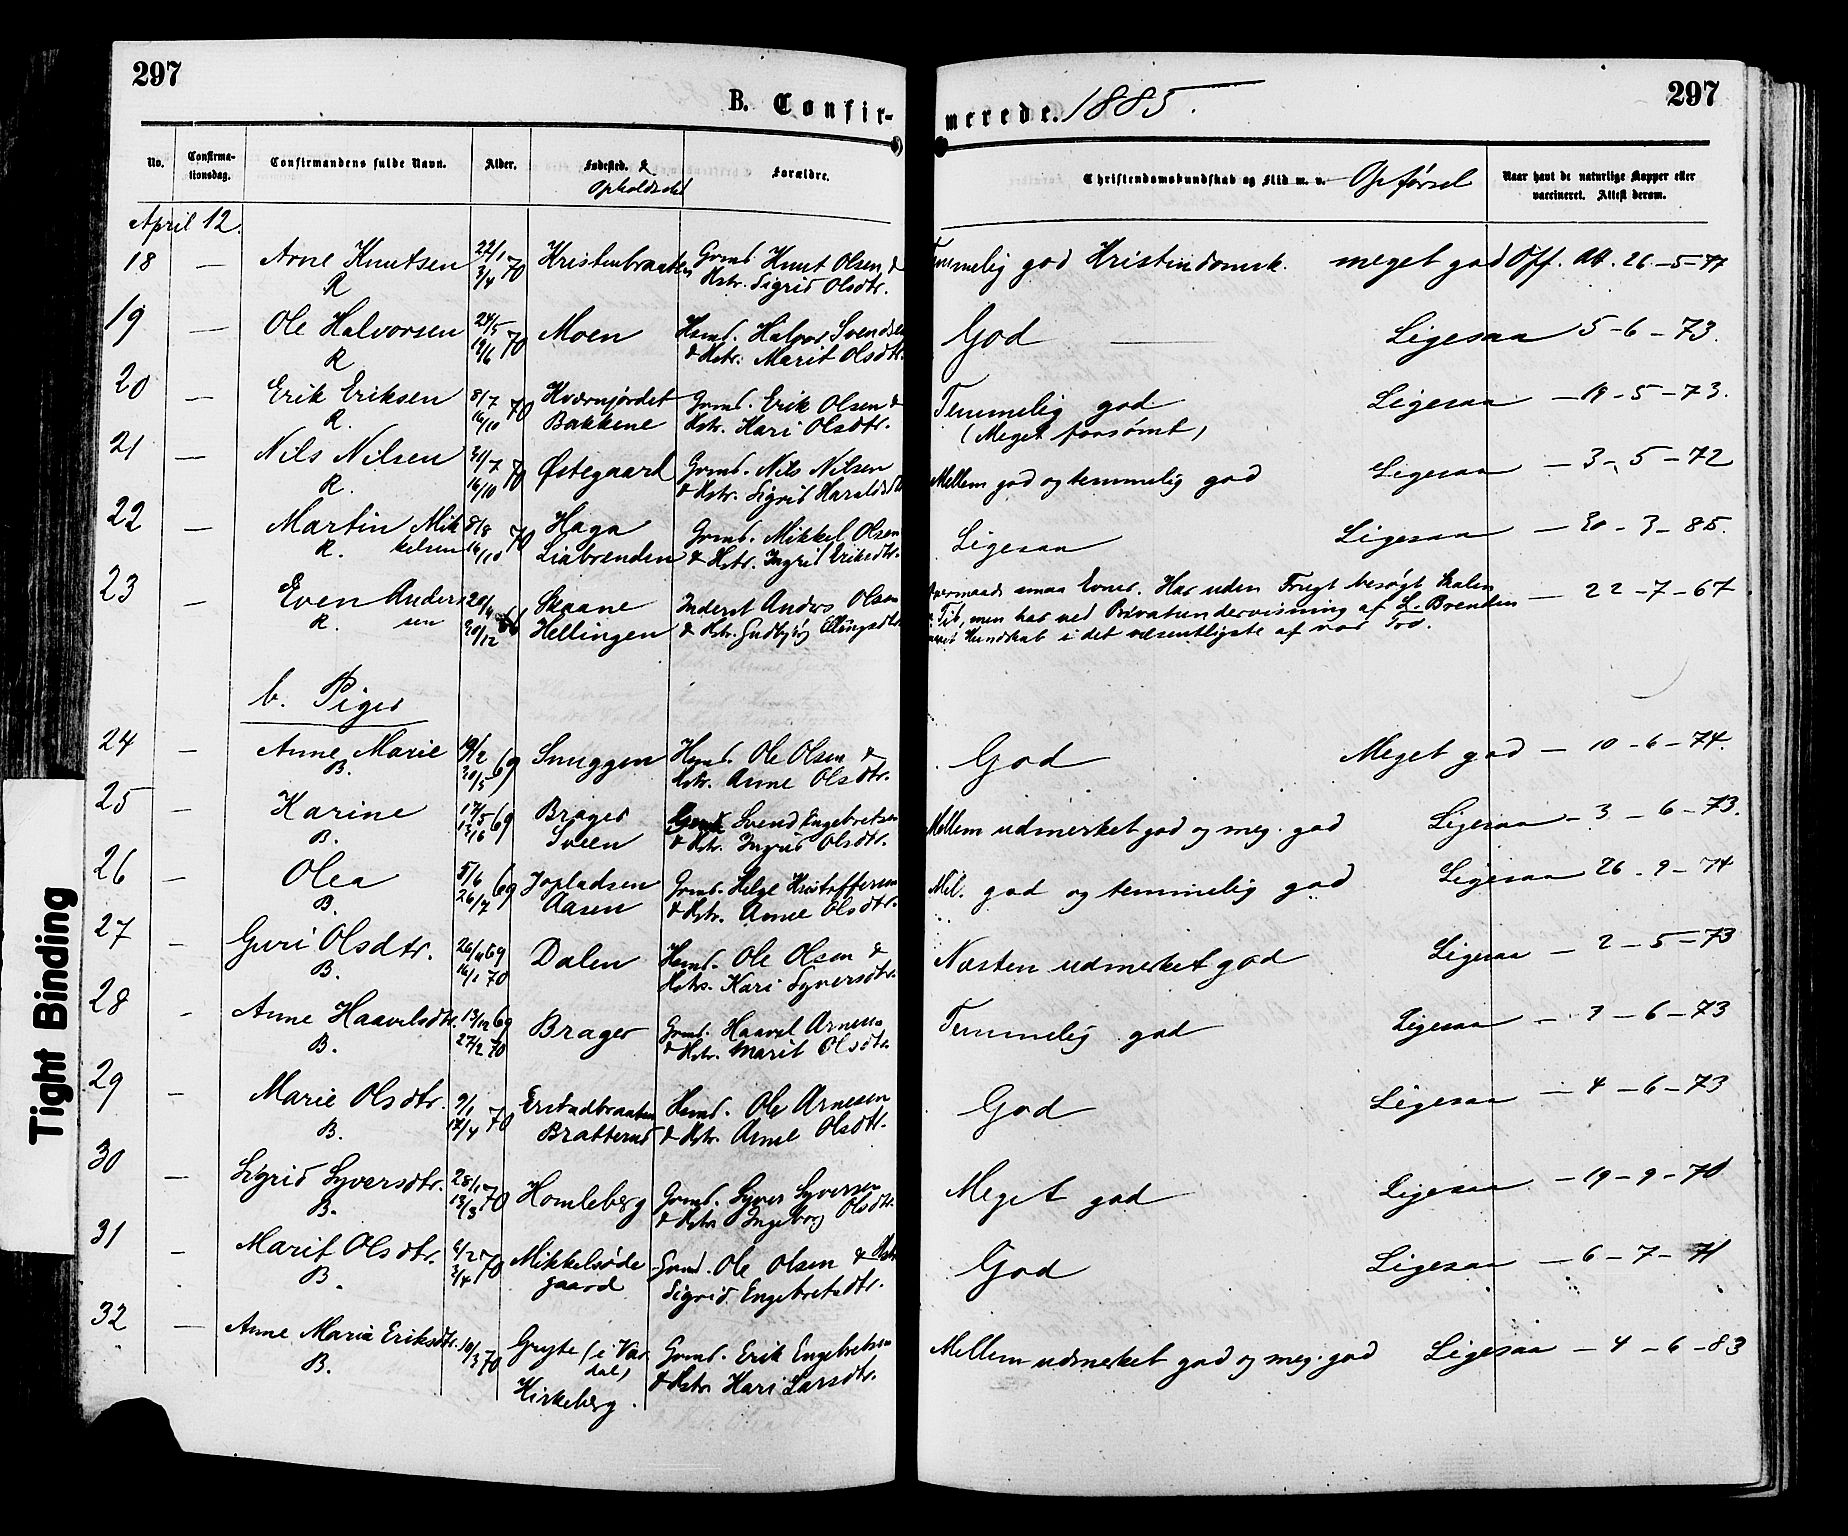 297
B. Confir-
merede. 1885.
297
No.
Confirma-
tionsdag.
Confirmandens fulde Navn.
Alder.
Fødested. &
Opholdssted
Forældre.
Christendomskundskab og Flid m. v. Opførsel
Naar havt de naturlige Kopper eller
vaccineret. Attest derom.
April 12.
18 — Arne Knutsen 22/1 70 Kristenbraaten Grmd. Knut Olsen & Temmelig god Kristendomsk. meget god Off. Att. 26.-5-77
R 3/4 Kstr. Sigrid Olsdtr.
19 — Ole Halvorsen 24/5 70 Moen Hsmd. Halvor Svendsen God — Ligesaa 5-6-73.
R 19/6 & Kstr. Marit Olsdtr.
20 — Erik Eriksen 8/7 70 Kværnjordet Grmd. Erik Olsen & Temmelig god Ligesaa — 19-5-73.
R. 16/10 Bakkene Kstr. Kari Olsdtr. (Meget forsømt)
21 — Nils Nilsen 31/7 70 Østegaard Grmd. Nils Nilsen Mellem god og temmelig god Ligesaa — 3-5-72
R. 16/10 & Kstr. Sigrid Haraldsdtr.
22 — Martin Mik 8/8 70 Haga Grmd. Mikkel Olsen Ligesaa Ligesaa — 30-3-85.
R. kelsen 16/10 Liabrenden & Kstr. Ingrid Eriksdtr.
23 — Even Anders Skaane Inderst Anders Olsen smaa Evner. Har uden Frugt besøgt Skolen — 22-7-67
R. sen 30/12 Hellingen & Kstr. Gudbjør Ellingsdtr. Tid, men har ved Privatundervisning af L. Brenden
Kundskab i det væsentligste af vor Tro.
b. Piger
24 — Anne Marie 19/2 69 Snuggen Hsmd. Ole Olsen & God Meget god — 10-6-74.
B. 30/5 Kstr. Anne Olsdtr.
25 — Karine 17/5 69 Brager Svend Engebretsen Mellem udmerket god og meg. god Ligesaa — 3-6-73.
B. 13/6 Sveen & Kstr. Ingrid Olsdtr.
26 — Olea 5/6 69 Jopladsen Grmd. Helge Kristoffersen Mel. god og temmelig god Ligesaa 26-9-74
B. 26/7 Aasen & Kstr. Anne Olsdtr.
27 — Guri Olsdtr. 69 Dalen Hsmd. Ole Olsen & Næsten udmerket god Ligesaa — 2-5-73
B. 16/1 70 Kstr. Kari Syversdtr.
28 - Anne Haavelsdtr. 13/12 69 Brager Grmd. Haavel Arnesen Temmelig god Ligesaa — 9-6-73
B. 27/2 70 & Kstr. Marit Olsdtr.
29 - Marie Olsdtr. 9/1 70 Erstadbraaten Hsmd. Ole Arnesen God Ligesaa — 4-6-73
B. 18/4 Bratterud & Kstr. Anne Olsdtr.
30 — Sigrid Syversdtr. 28/1 70 Homleberg Grmd. Syver Syversen Meget god Ligesaa — 19-9-70
B. 13/3 & Kstr. Ingeborg Olsdtr.
31 - Marit Olsdtr. 6/2 70 Mikkelsøde Grmd. Ole Olsen & Kstr. God Ligesaa — 6-7-71
B. 3/4 gaard Sigrid Engebretsdtr.
32 — Anne Maria Eriksdtr. 10/3 70 Gryte (i Var Grmd. Erik Engebretsen Mellem udmerket god og meg. god Ligesaa — 4-6-83
B. dal) & Kstr. Kari Larsdtr.
Kirkeberg.
Tight Binding